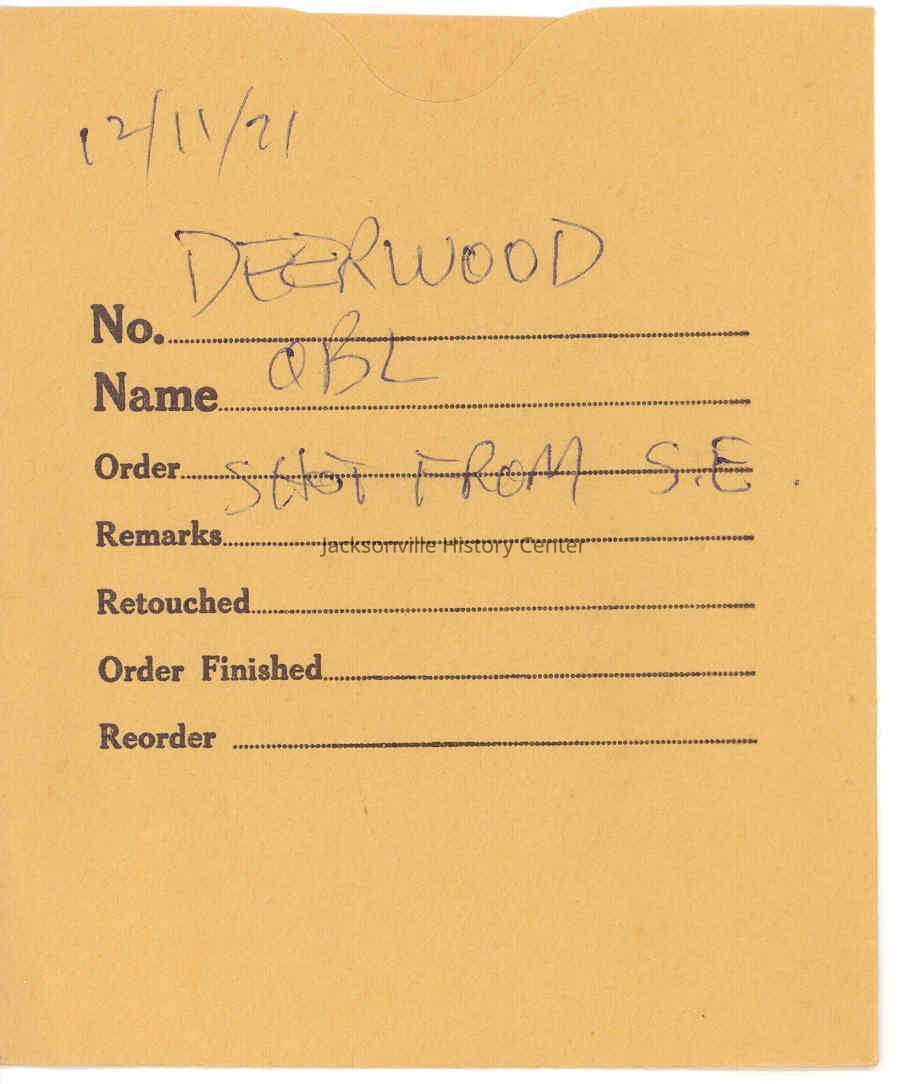 12/11/71
DEERWOOD
No.
OBL
Name
Order SHOT FROM S.E.
Remarks
Jacksonville History Center
Retouched
Order Finished
Reorder